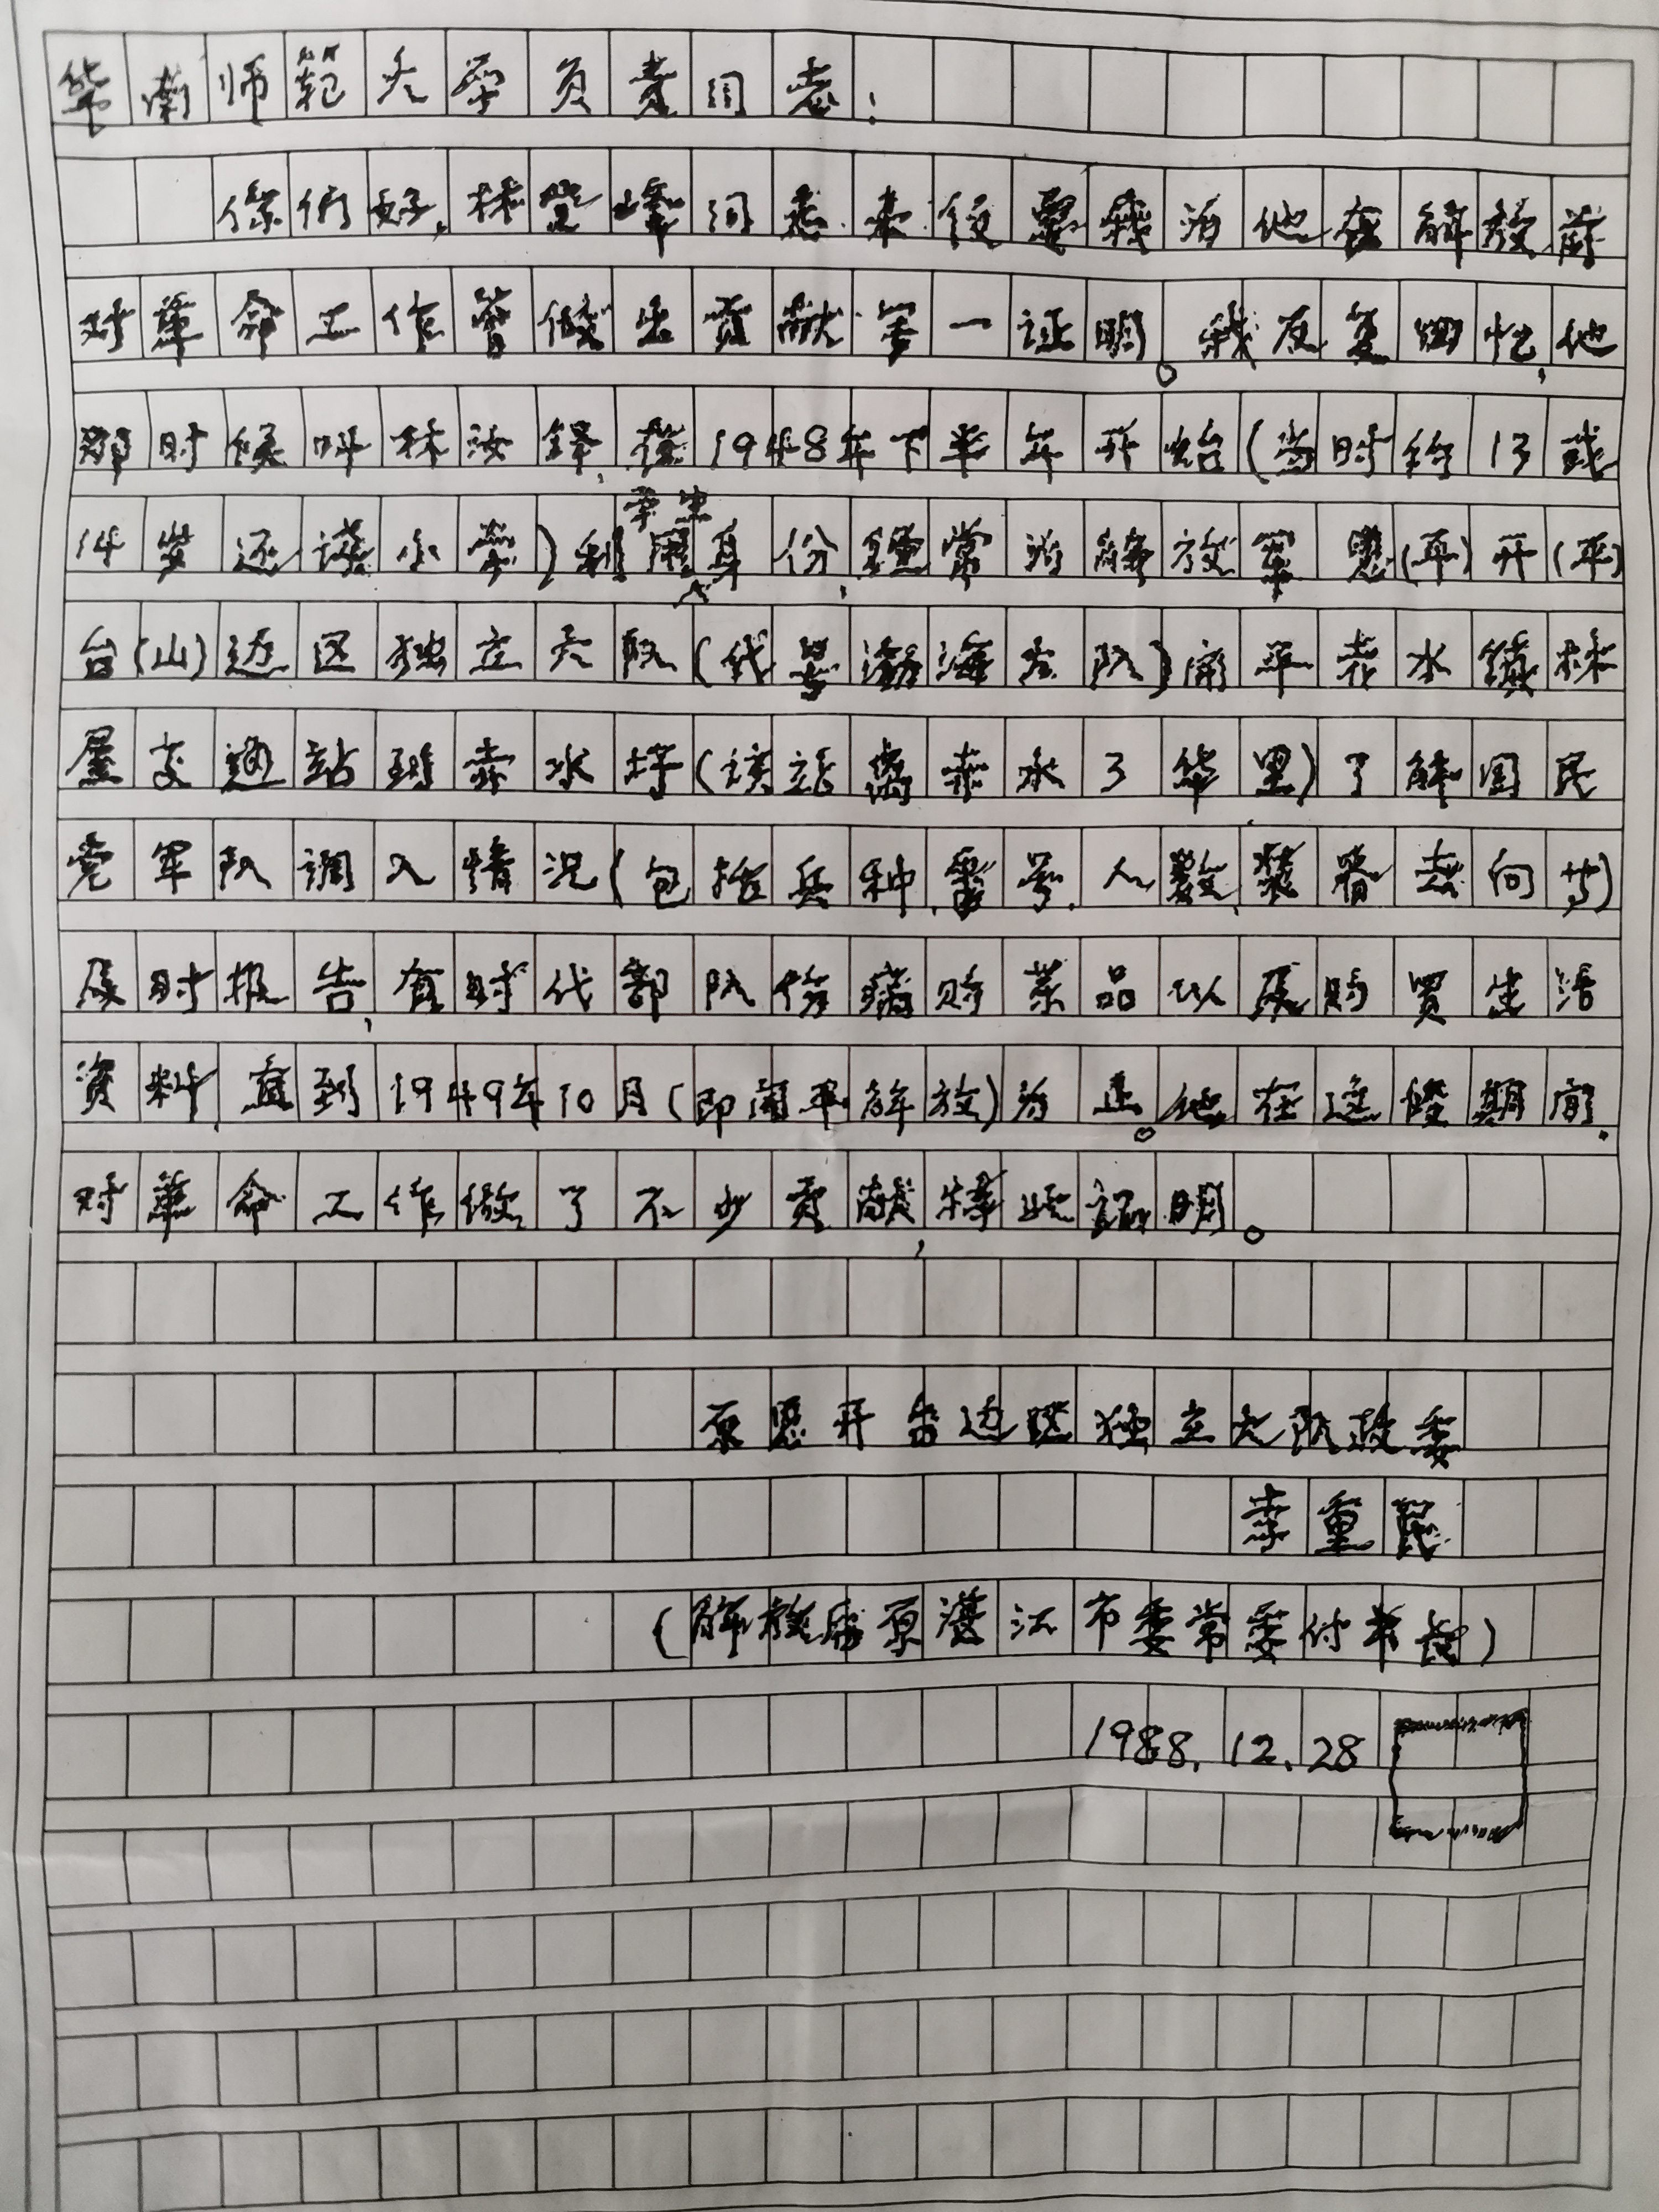 华南师範大学负责同志:
你们好,林登峰同志来信要我为他在解放前
对革命工作曾做出贡献写一证明。我反复回忆,他
那时候叫林汝鐸,從1948年下半年开始(当时约13或
14岁还读小学)利用学生身份,經常为解放军恩(平)开(平)
台(山)边区独立大队(代号渤海大队)开平赤水镇林
屋交通站到赤水圩(该站离赤水3华里)了解国民
党军队调入情况(包括兵种.番号.人数.装备去向等)
及时报告,有时代部队伤病购药品以及购買生活
資料,直到1949年10月(即開平解放)为止。他在这段期间.
对革命工作做了不少贡献,特此証明。
原恩开台边区独立大队政委
李重民
(解放后原湛江市委常委付市长)
1988.12.28